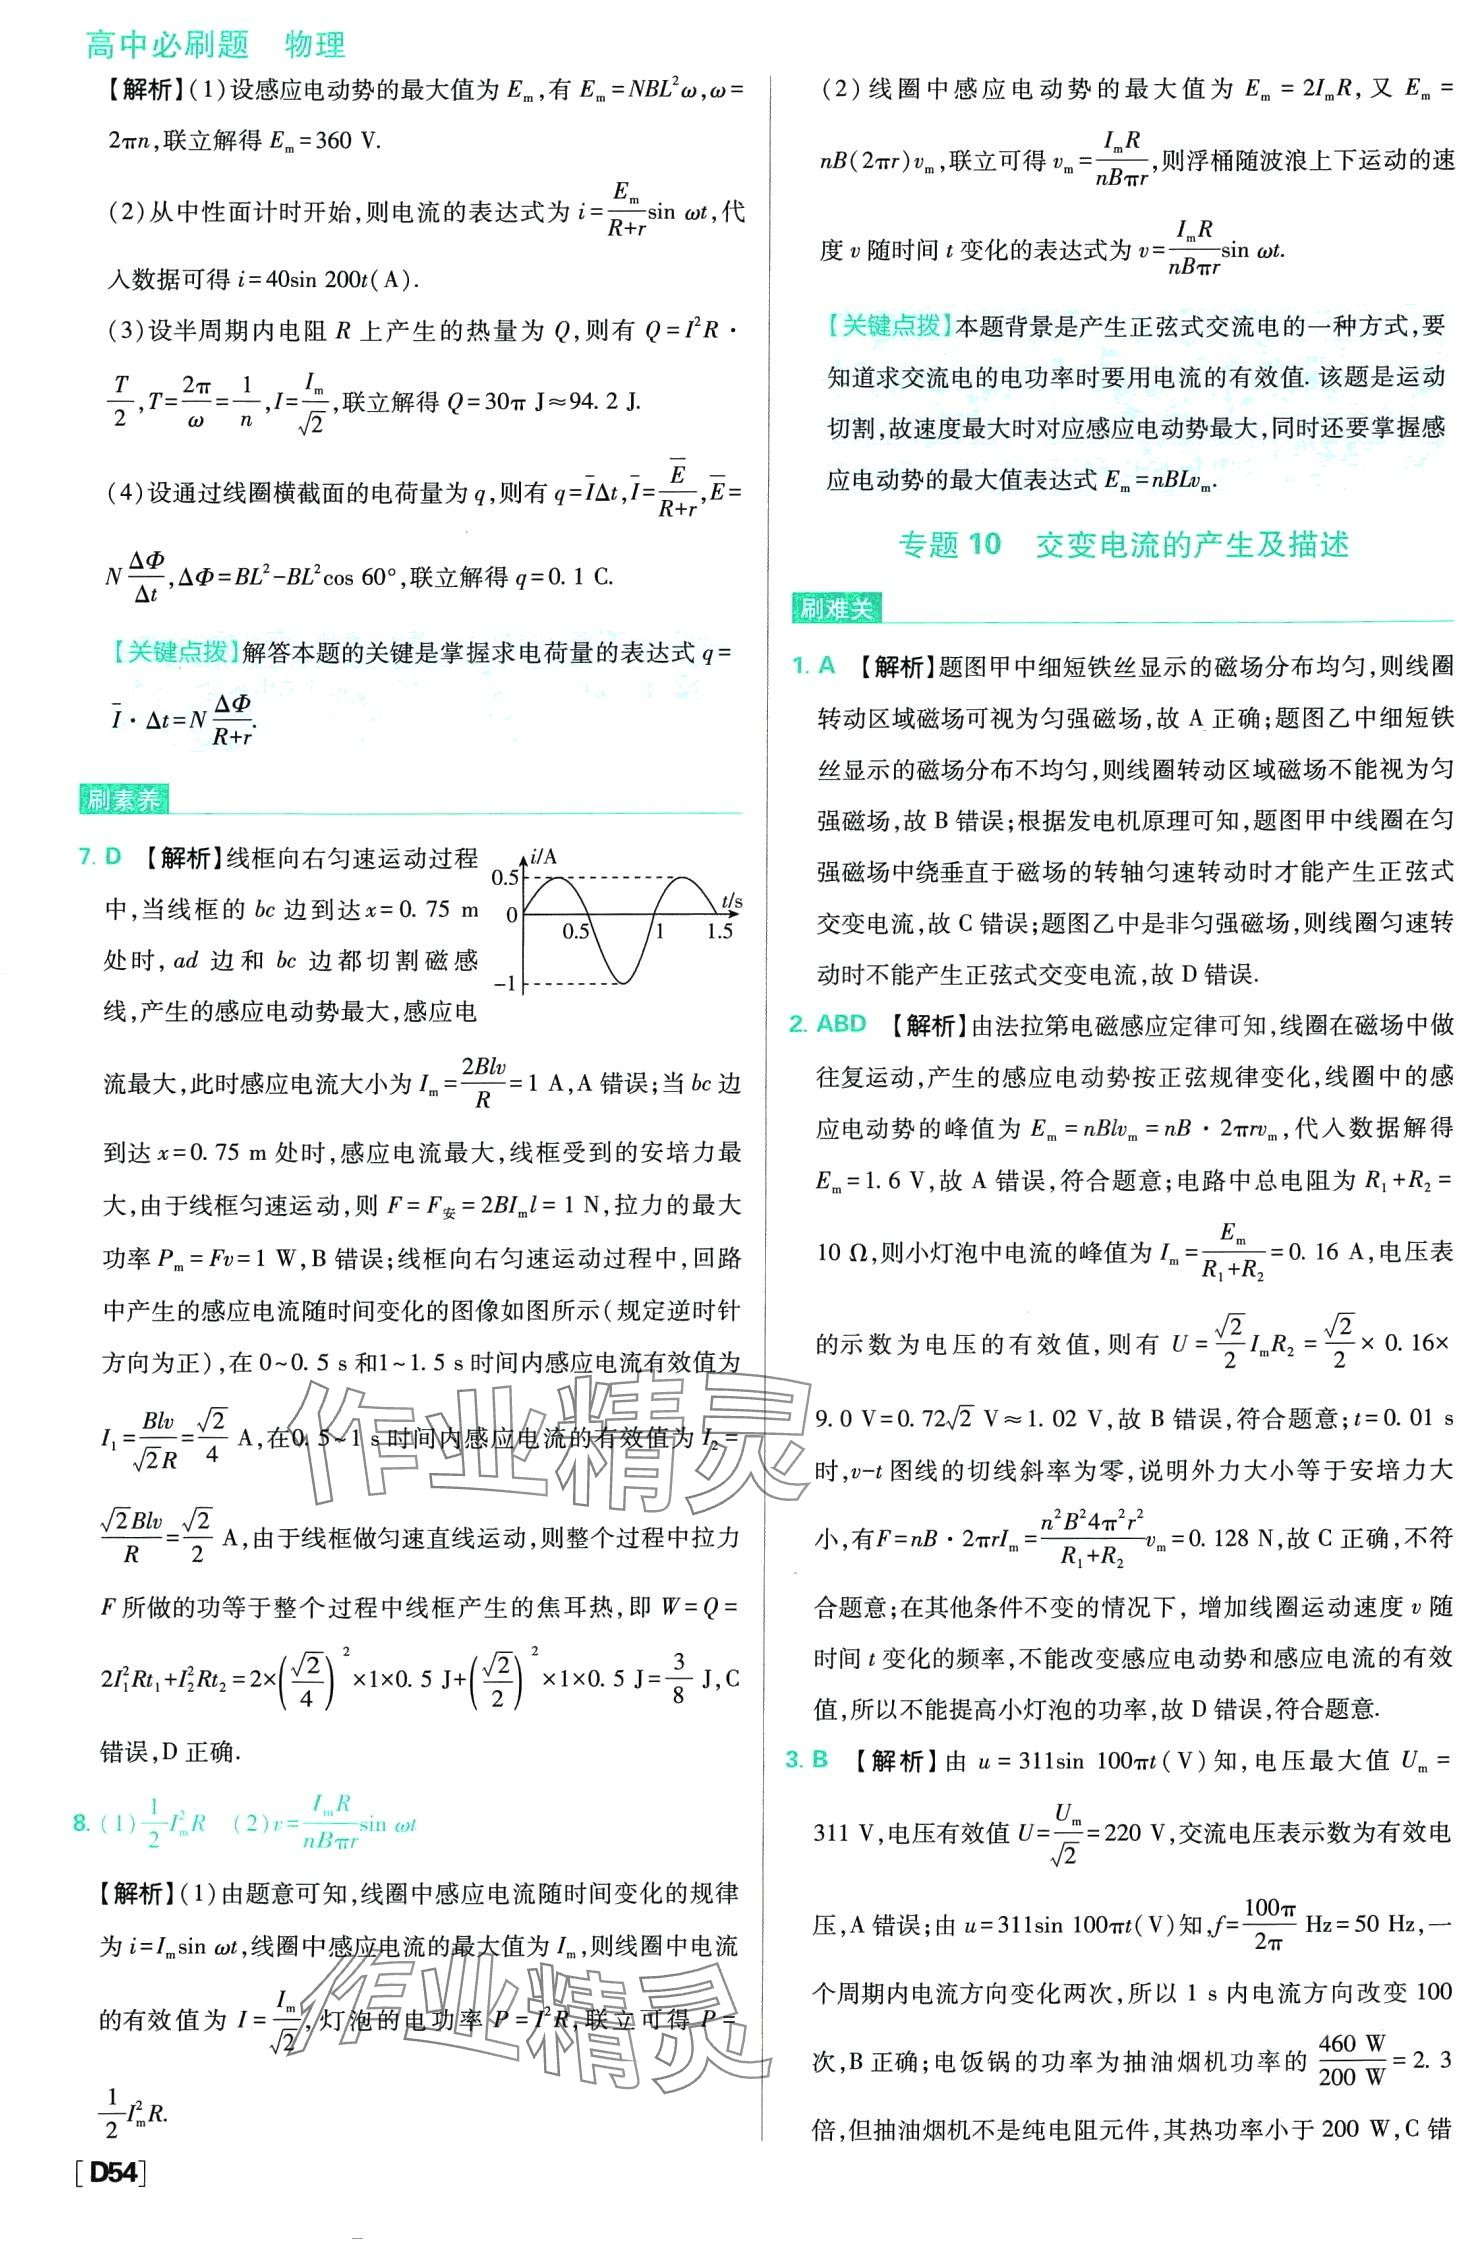 高中必刷题 物理
【解析】(1)设感应电动势的最大值为 Em,有 Em=NBL²ω,ω=
2πn,联立解得 Em=360 V.
(2)从中性面计时开始,则电流的表达式为 i=Em/(R+r) sin ωt,代
入数据可得 i=40sin 200t(A).
(3)设半周期内电阻 R 上产生的热量为 Q,则有 Q=I²R·
T/2,T=2π/ω=1/n,I=Im/√2,联立解得 Q=30π J≈94.2 J.
(4)设通过线圈横截面的电荷量为 q,则有 q=I̅Δt,I̅=E̅/(R+r),E̅=
NΔΦ/Δt,ΔΦ=BL²-BL²cos 60°,联立解得 q=0.1 C.
【关键点拨】解答本题的关键是掌握求电荷量的表达式 q=
I̅·Δt=NΔΦ/(R+r).
刷素养
7. D 【解析】线框向右匀速运动过程
中,当线框的 bc 边到达 x=0.75 m
处时,ad 边和 bc 边都切割磁感
线,产生的感应电动势最大,感应电
i/A
0.5
t/s
0
0.5
1
1.5
-1
流最大,此时感应电流大小为 Im=2Blv/R=1 A,A 错误;当 bc 边
到达 x=0.75 m 处时,感应电流最大,线框受到的安培力最
大,由于线框匀速运动,则 F=F安=2BIml=1 N,拉力的最大
功率 Pm=Fv=1 W,B 错误;线框向右匀速运动过程中,回路
中产生的感应电流随时间变化的图像如图所示(规定逆时针
方向为正),在 0~0.5 s 和1~1.5 s 时间内感应电流有效值为
I₁=Blv/(√2R)=√2/4 A,在0.5~1 s 时间内感应电流的有效值为 I₂=
√2Blv/R=√2/2 A,由于线框做匀速直线运动,则整个过程中拉力
F 所做的功等于整个过程中线框产生的焦耳热,即 W=Q=
2I₁²Rt₁+I₂²Rt₂=2×(√2/4)²×1×0.5 J+(√2/2)²×1×0.5 J=3/8 J,C
错误,D 正确.
8. (1)1/2 Im²R (2)v=ImR/(nBπr) sin ωt
【解析】(1)由题意可知,线圈中感应电流随时间变化的规律
为 i=Imsin ωt,线圈中感应电流的最大值为 Im,则线圈中电流
的有效值为 I=Im/√2,灯泡的电功率 P=I²R,联立可得 P=
1/2 Im²R.
[D54]
(2)线圈中感应电动势的最大值为 Em=2ImR,又 Em=
nB(2πr)vm,联立可得 vm=ImR/(nBπr),则浮桶随波浪上下运动的速
度 v 随时间 t 变化的表达式为 v=ImR/(nBπr) sin ωt.
【关键点拨】本题背景是产生正弦式交流电的一种方式,要
知道求交流电的电功率时要用电流的有效值.该题是运动
切割,故速度最大时对应感应电动势最大,同时还要掌握感
应电动势的最大值表达式 Em=nBLvm.
专题 10 交变电流的产生及描述
刷难关
1. A 【解析】题图甲中细短铁丝显示的磁场分布均匀,则线圈
转动区域磁场可视为匀强磁场,故 A 正确;题图乙中细短铁
丝显示的磁场分布不均匀,则线圈转动区域磁场不能视为匀
强磁场,故 B 错误;根据发电机原理可知,题图甲中线圈在匀
强磁场中绕垂直于磁场的转轴匀速转动时才能产生正弦式
交变电流,故 C 错误;题图乙中是非匀强磁场,则线圈匀速转
动时不能产生正弦式交变电流,故 D 错误.
2. ABD 【解析】由法拉第电磁感应定律可知,线圈在磁场中做
往复运动,产生的感应电动势按正弦规律变化,线圈中的感
应电动势的峰值为 Em=nBlvm=nB·2πrvm,代入数据解得
Em=1.6 V,故 A 错误,符合题意;电路中总电阻为 R₁+R₂=
10 Ω,则小灯泡中电流的峰值为 Im=Em/(R₁+R₂)=0.16 A,电压表
的示数为电压的有效值,则有 U=√2/2 ImR₂=√2/2×0.16×
9.0 V=0.72√2 V≈1.02 V,故 B 错误,符合题意;t=0.01 s
时,v-t 图线的切线斜率为零,说明外力大小等于安培力大
小,有F=nB·2πrIm=n²B²4π²r²/(R₁+R₂) vm=0.128 N,故 C 正确,不符
合题意;在其他条件不变的情况下,增加线圈运动速度 v 随
时间 t 变化的频率,不能改变感应电动势和感应电流的有效
值,所以不能提高小灯泡的功率,故 D 错误,符合题意.
3. B 【解析】由 u=311sin 100πt(V)知,电压最大值 Um=
311 V,电压有效值 U=Um/√2=220 V,交流电压表示数为有效电
压,A 错误;由 u=311sin 100πt(V)知,f=100π/2π Hz=50 Hz,一
个周期内电流方向变化两次,所以 1 s 内电流方向改变 100
次,B 正确;电饭锅的功率为抽油烟机功率的 460 W/200 W=2.3
倍,但抽油烟机不是纯电阻元件,其热功率小于 200 W,C 错
作业精灵
作业精灵